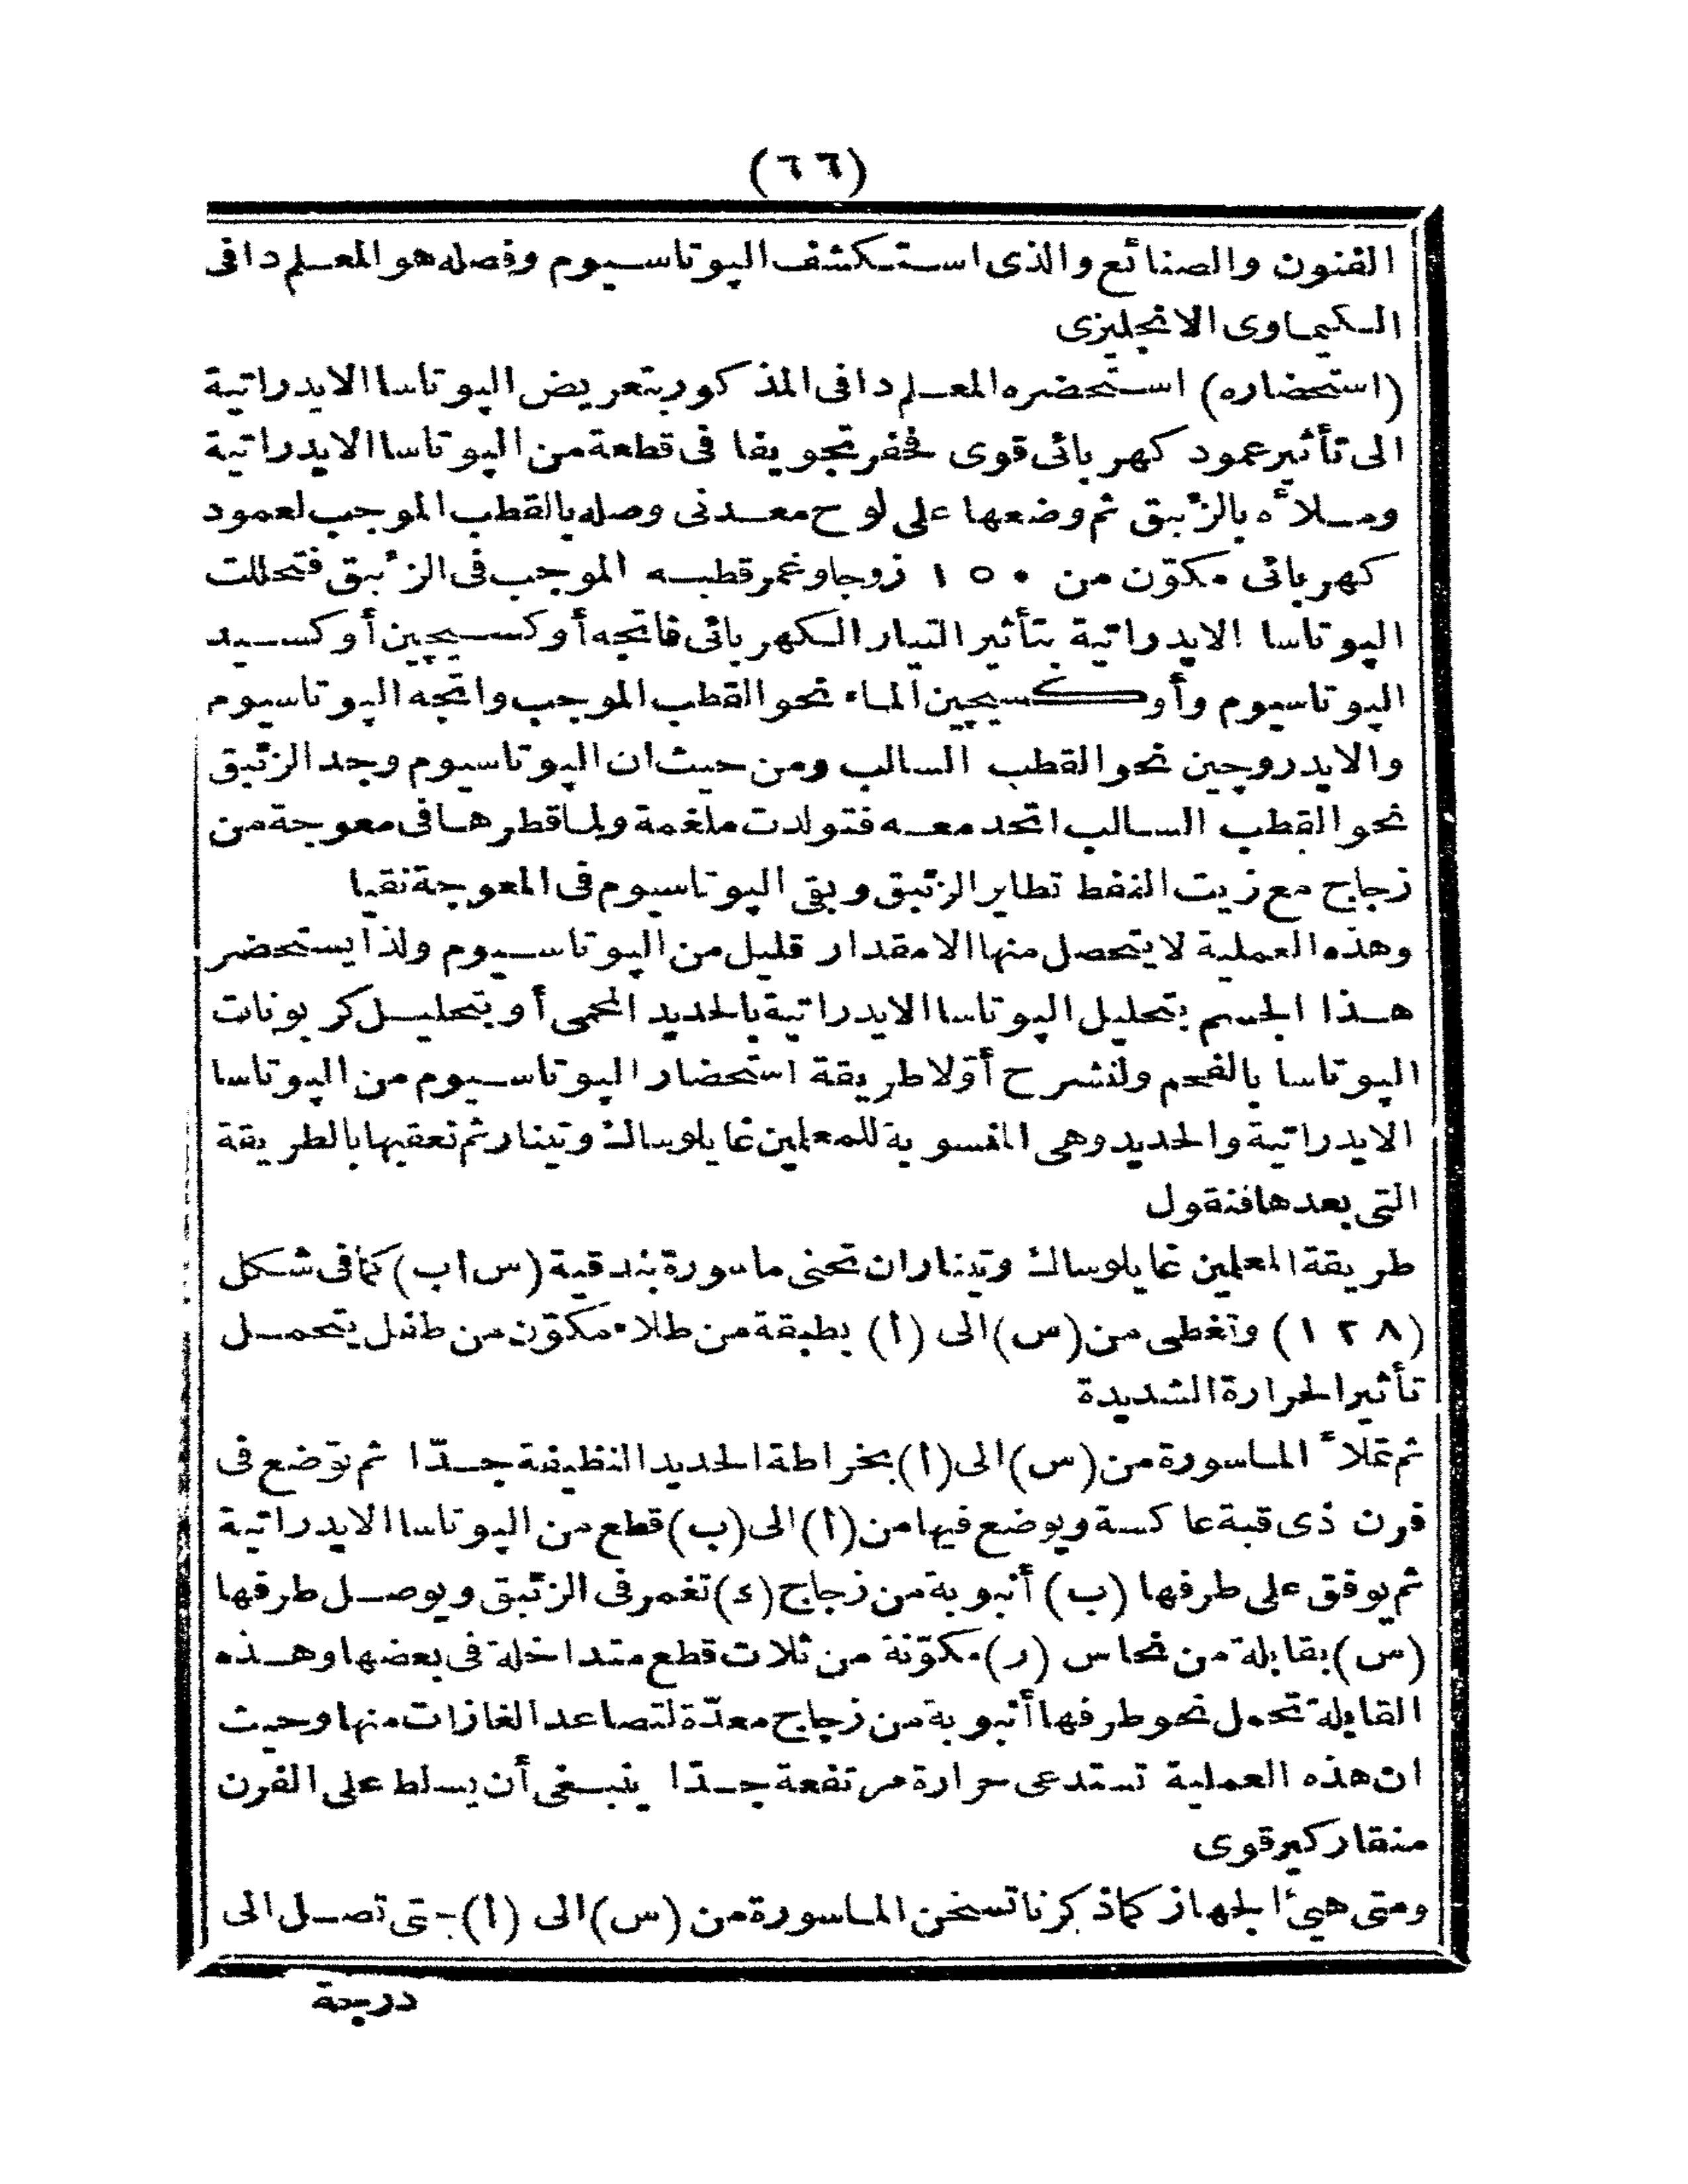 (٦٦)
الفنون والصنائع والذى استكشف اليوتاسيوم وفصله هو المعلم دافى
الكيماوى الانجليزى
(استحضاره) استحضره المعلم دافى المذكور بتعريض الپوتاسا الايدراتية
الى تأثير عمود كهربائى قوى فحفر تجويفا فى قطعة من الپوتاسا الايدراتية
وملأه بالزئبق ثم وضعها على لوح معدنى وصله بالقطب الموجب لعمود
كهربائى مكوّن من ١٥٠ زوجا وغمر قطبه الموجب فى الزئبق فتحللت
الپوتاسا الايدراتية بتأثير التيار الكهربائى فاتجه أوكسيچين أوكسيد
الپوتاسيوم وأوكسيچين الماء نحو القطب الموجب واتجه الپوتاسيوم
والايدروچين نحو القطب السالب ومن حيث ان الپوتاسيوم وجد الزئبق
نحو القطب السالب اتحد معه فتولدت ملغمة ولما قطرها فى معوجة من
زجاج مع زيت النفط تطاير الزئبق وبقى الپوتاسيوم فى المعوجة نقيا
وهذه العملية لا يتحصل منها الا مقدار قليل من الپوتاسيوم ولذا يستحضر
هذا الجسم بتحليل الپوتاسا الايدراتية بالحديد المحمى أو بتحليل كربونات
الپوتاسا بالفحم ولنشرح أوّلا طريقة استحضار الپوتاسيوم من الپوتاسا
الايدراتية والحديد وهى المنسوبة للمعلمين غايلوساك وتينار ثم نعقبها بالطريقة
التى بعدها فنقول
طريقة المعلمين غايلوساك وتينار ان تحنى ماسورة بندقية (س ا ب) كما فى شكل
(١٢٨) وتغطى من (س) الى (ا) بطبقة من طلاء مكوّن من طفل يتحمل
تأثير الحرارة الشديدة
ثم تملأ الماسورة من (س) الى (ا) بخراطة الحديد النظيفة جدّا ثم توضع فى
فرن ذى قبة عاكسة ويوضع فيها من (ا) الى (ب) قطع من الپوتاسا الايدراتية
ثم يوفق على طرفها (ب) أنبوبة من زجاج (ء) تغمر فى الزئبق ويوصل طرفها
(س) بقابلة من نحاس (ر) مكوّنة من ثلاث قطع متداخلة فى بعضها وهذه
القابلة تحمل نحو طرفها أنبوبة من زجاج معدّة لتصاعد الغازات منها وحيث
ان هذه العملية تستدعى حرارة مرتفعة جدّا ينبغى أن يسلط على الفرن
منقار كير قوى
ومتى هيئ الجهاز كما ذكرنا تسخن الماسورة من (س) الى (ا) حتى تصل الى
درجة